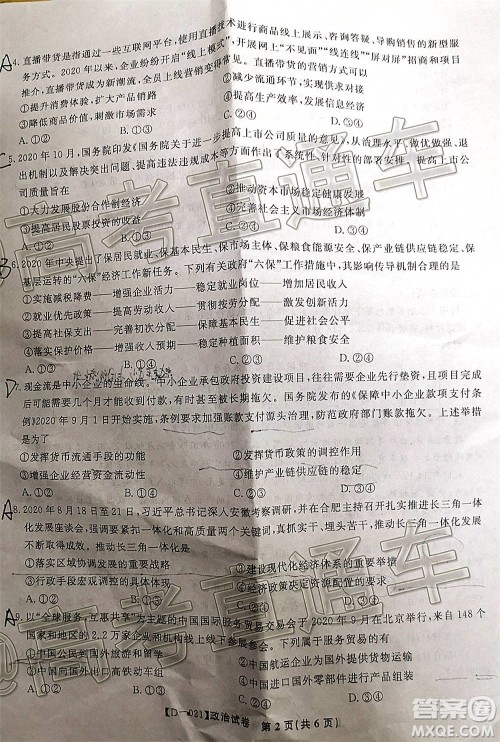 A 4. 直播带货是指通过一些互联网平台，使用直播技术进行商品线上展示、咨询答疑、导购销售的新型服
务方式。2020年以来，企业纷纷开启“线上模式”，以“网上不见面”“线连线”“屏对屏”招商和项目
推介，直播带货成为新潮流，企业经营
直播带货的营销方式可以
①提升商品质量，扩大产品销路
②提高生产效率，
③降低商品价值，刺激市场需求
A. ①②
B. ①③
C. ②④
D. ③④
C 5. 2020年10月，国务院印发《国务院关于进一步提高上市公司质量的意见》，
退
出机制以及解决突出问题、提高违法违规成本等方面作出了系统性、针对性的部署安排。提高上市公
司质量旨在
①大力发展股份制企业
②推动资本市场稳定健康发展
③提高居民股票投资收入
④完善社会主义市场经济体制
A. ①②
B. ①③
C. ②④
D. ③④
B 6. 2020年中央提出了保居民就业、保基本民生、保市场主体、保粮食能源安全、保产业链供应链稳定、保
基层运转的“六保”经济工作新任务。下列有关政府“六保”工作措施中，其影响传导机制合理的是
①实施减税降费——增强企业活力——稳定就业岗位——增加劳动收入
②就业优先政策——增加就业岗位——贯彻按劳分配——促进社会公平
③发展实体经济——增加社会供给——保障基本民生——促进社会和谐
④落实保护价格——扩大市场需求——增加产品供给——保障粮食安全
A. ①②
B. ①③
C. ②④
D. ③④
D 7. 现金流是中小企业的生命线。中小企业承包政府投资建设项目，一般需要企业先行垫资，且项目完成后
才能收到付款，有时甚至被长期拖欠。国务院发布的《保障中小企业款项支付条
例》2020年9月1日开始实施，条例要求加强账款支付源头治理，防范政府部门账款拖欠。上述举措
是为了
①发挥货币流通手段的职能
②发挥货币政策的调控作用
③增强企业经营资金流动性
④维护产业链供应链的稳定
A. ①②
B. ①③
C. ②④
D. ③④
A 8. 2020年8月18日至21日，习近平总书记深入安徽考察调研，并在合肥主持召开扎实推进长三角一体
化发展座谈会，强调要紧扣一体化和高质量两个关键词，真抓实干、埋头苦干，推动长三角一体化发展
不断取得成效。推动长三角一体化发展
①落实区域协调发展战略
②建设现代化经济体系的要求
③行政手段宏观调控的体现
④经济政策决定资源优化配置
A. ①②
B. ①③
C. ②④
D. ③④
A 9. 以“全球服务，互惠共享”为主题的中国国际服务贸易交易会于2020年9月在北京举行，来自148个
国家和地区的2.2万家企业和机构线上线下参展参会。下列属于
①中国公民到国外旅游
②外国企业给中国出口产品提供货物运输
③中国向国外出口高铁动车组
④中国进口
零部件组装产品
A. ①②
B. ①③
C. ②④
D. ③④
【D—021】政治试卷 第2页(共6页)
高考直通车
高考直通车
答案圈
MXQE.COM